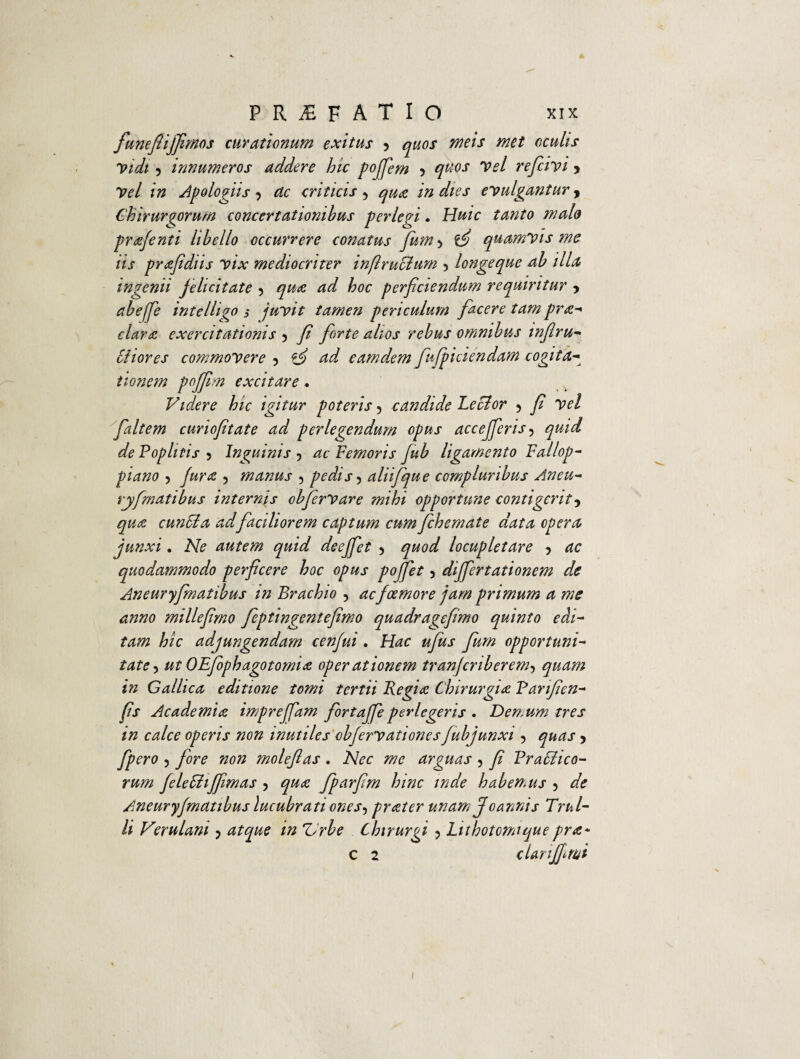 PRÆFATIO XIX
funeſtiſſimos curationum exitus, quos meis met oculis
vidi, innumeros addere hic poſſem, quos vel reſcivi,
vel in Apologiis, ac criticis, quæ in dies evulgantur,
Chirurgorum concertationibus perlegi. Huic tanto malo
præſenti libello occurrere conatus ſum, & quamvis me
iis præſidiis vix mediocriter inſtructum, longeque ab illa
ingenii felicitate, quæ ad hoc perficiendum requiritur,
abeſſe intelligo; juvit tamen periculum facere tam præ-
claræ exercitationis, ſi forte alios rebus omnibus inſtru-
ctiores commovere, & ad eamdem ſuſpiciendam cogita-
tionem poſſim excitare.
Videre hic igitur poteris, candide Lector, ſi vel
ſaltem curioſitate ad perlegendum opus acceſſeris, quid
de Poplitis, Inguinis, ac Femoris ſub ligamento Fallop-
piano, ſuræ, manus, pedis, aliiſque compluribus Aneu-
ryſmatibus internis obſervare mihi opportune contigerit,
quæ cuncta ad faciliorem captum cum ſchemate data opera
junxi. Ne autem quid deeſſet, quod locupletare, ac
quodammodo perficere hoc opus poſſet, diſſertationem de
Aneuryſmatibus in Brachio, ac fœmore jam primum a me
anno milleſimo ſeptingenteſimo quadrageſimo quinto edi-
tam hic adjungendam cenſui. Hac uſus ſum opportuni-
tate, ut OEſophagotomiæ operationem tranſcriberem, quam
in Gallica editione tomi tertii Regiæ Chirurgiæ Pariſien-
ſis Academiæ impreſſam fortaſſe perlegeris. Demum tres
in calce operis non inutiles obſervationes ſubjunxi, quas,
ſpero, fore non moleſtas. Nec me arguas, ſi Practico-
rum ſelectiſſimas, quæ ſparſim hinc inde habemus, de
Aneuryſmatibus lucubrationes, præter unam Joannis Trul-
li Verulani, atque in Urbe Chirurgi, Lithotomique præ-
C 2 clariſſimi